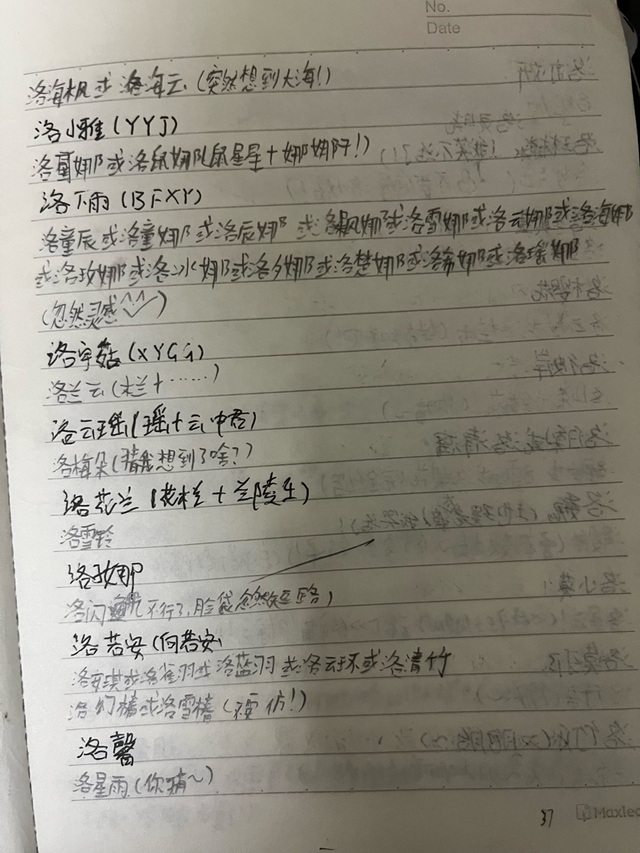 No.
Date
洛海枫或洛海云（突然想到大海！）
洛小雅（YYJ）
洛星娜或洛鼠娜（鼠星星＋娜娜阿！）
洛下雨（BFXY）
洛童辰或洛童娜或洛辰娜或洛飘娜或洛雪娜或洛云娜或洛海娜
或洛玫娜或洛冰娜或洛夕娜或洛楚娜或洛希娜或洛瑶娜
（忽然灵感^^）
洛宇菇（XYGG）
洛兰云（木兰＋……）
洛云瑶（瑶＋云中君）
洛梅朵（猜我想到了啥？）
洛花兰（花木兰＋兰陵王）
洛雪铃
洛玫娜
洛闪 不行了，脸袋忽然短路）
洛若安（向若安
洛安琪或洛雀羽或洛蓝羽或洛云环或洛清竹
洛幻椿或洛雪椿（要仿！）
洛馨
洛星雨（你猜～）
37
Maxleaf